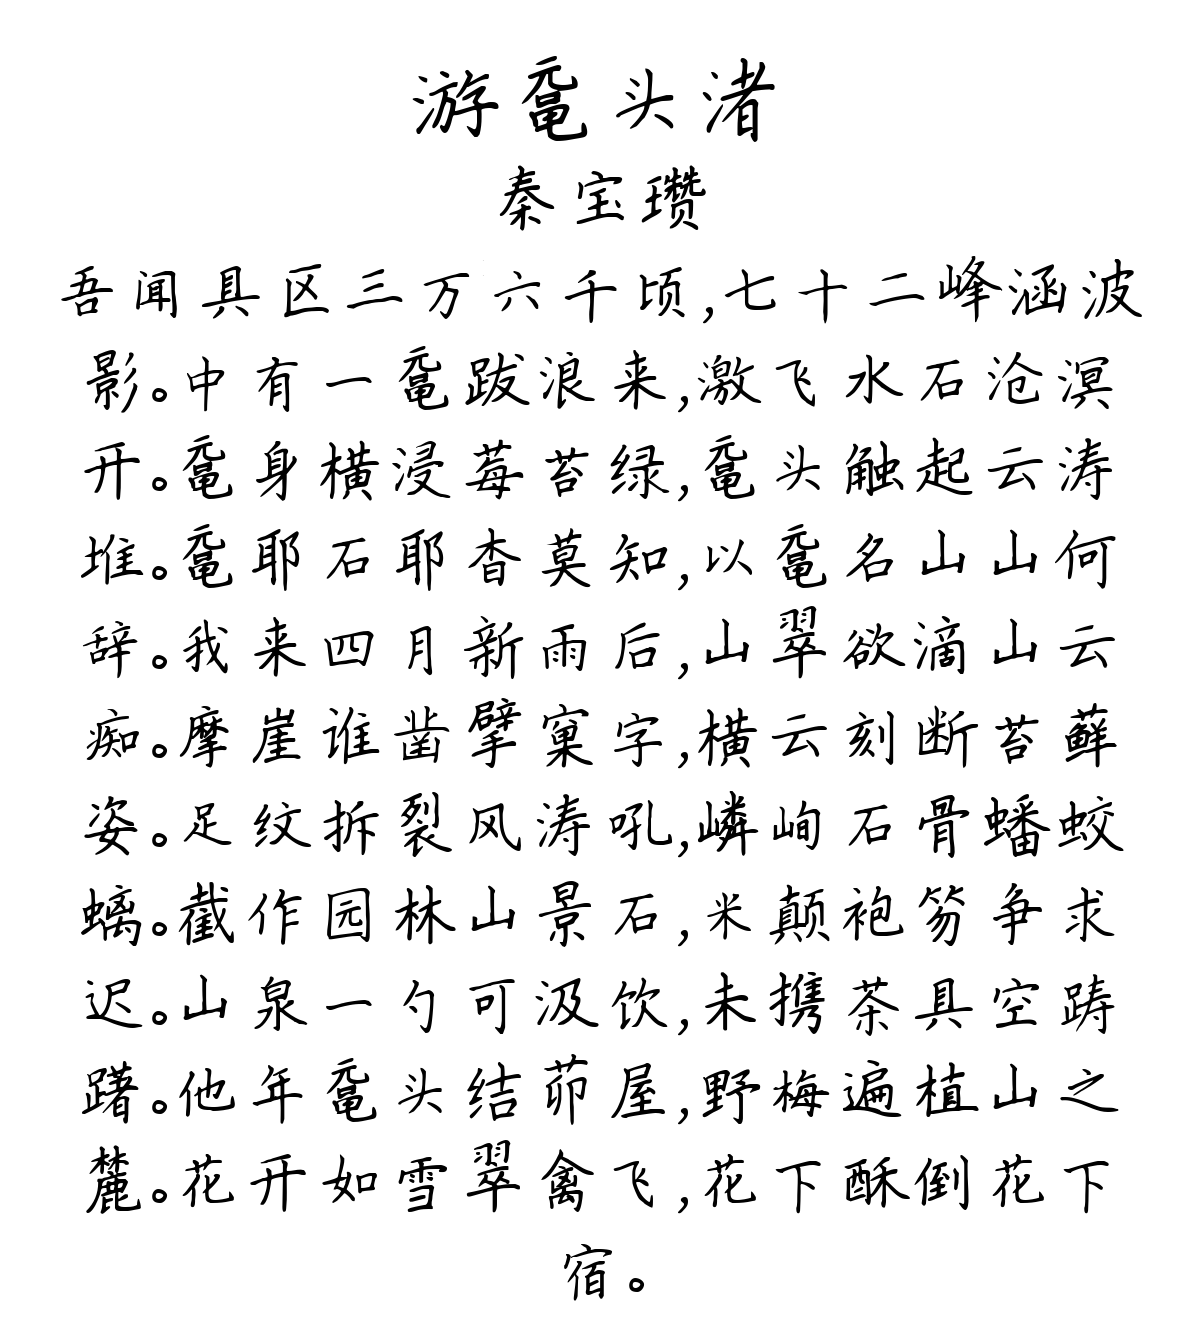 游鼋头渚
秦宝瓒
吾闻具区三万六千顷,七十二峰涵波
影。中有一鼋跋浪来,激飞水石沧溟
开。鼋身横浸莓苔绿,鼋头触起云涛
堆。鼋耶石耶杳莫知,以鼋名山山何
辞。我来四月新雨后,山翠欲滴山云
痴。摩崖谁凿擘窠字,横云刻断苔藓
姿。足纹拆裂风涛吼,嶙峋石骨蟠蛟
螭。截作园林山景石,米颠袍笏争求
迟。山泉一勺可汲饮,未携茶具空踌
躇。他年鼋头结茆屋,野梅遍植山之
麓。花开如雪翠禽飞,花下酥倒花下
宿。